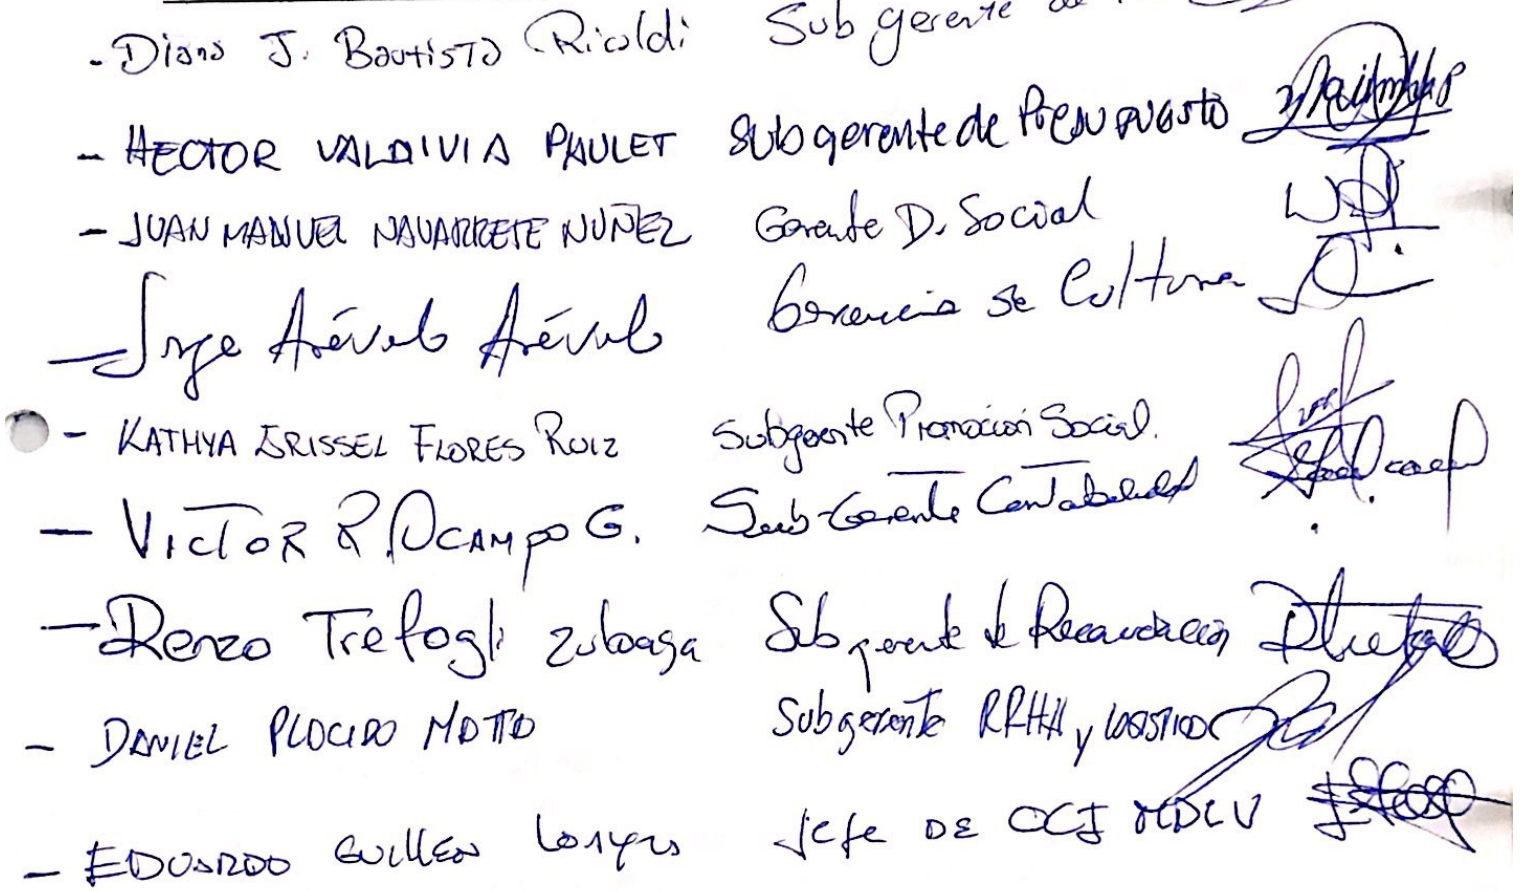 - Diana J. Bautista Ricaldi Sub gerente de
- HECTOR VALDIVIA PAULET Subgerente de Presupuesto
- JUAN MANUEL NAVARRETE NUÑEZ Gerente D. Social
- Jorge Arévalo Arévalo Gerencia de Cultura
- KATHYA GRISSEL FLORES RUIZ Subgerente Promoción Social.
- VICTOR R. OCAMPO G. Sub-Gerente Contabilidad
- Renzo Trefogli Zuloaga Subgerente de Recaudación
- DANIEL PLACIDO MOTTO Subgerente RRHH y LOGISTICO
- EDUARDO GUILLEN Jefe DE OCI MDLV